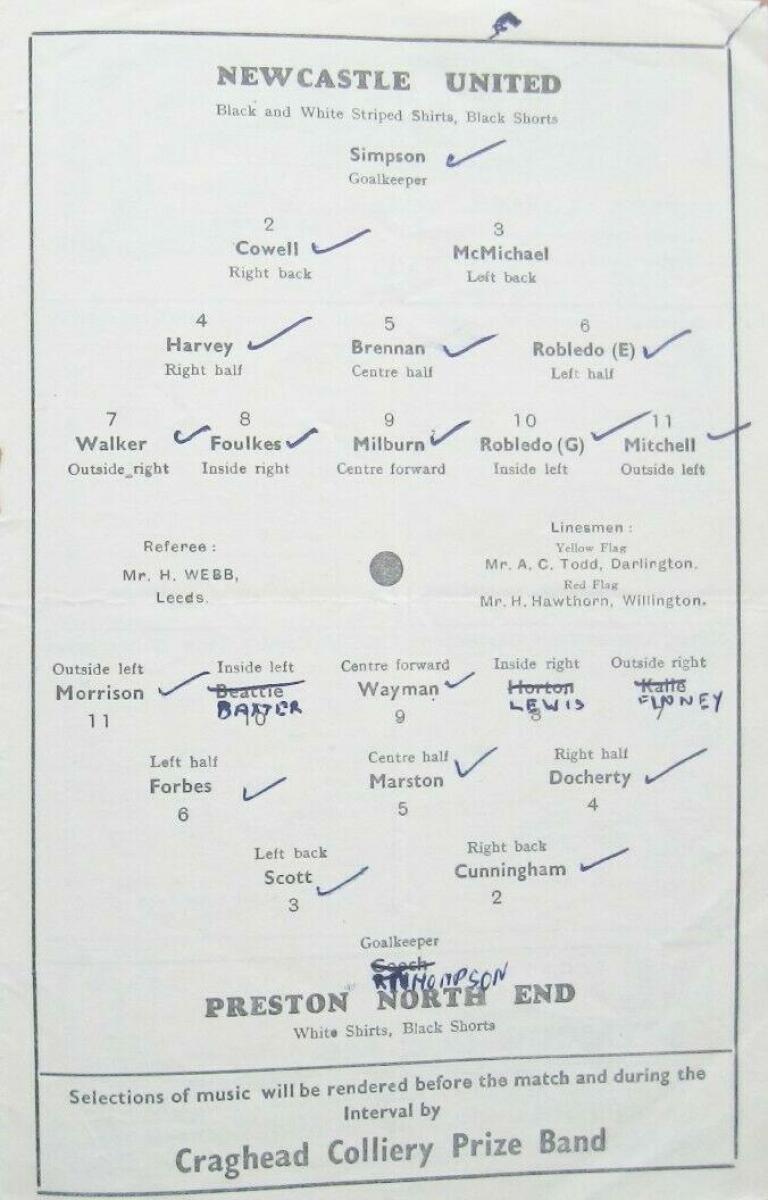 NEWCASTLE UNITED
Black and White Striped Shirts, Black Shorts
Simpson
Goalkeeper
2 3
Cowell McMichael
Right back Left back
4 5 6
Harvey Brennan Robledo (E)
Right half Centre half Left half
7 8 9 10 11
Walker Foulkes Milburn Robledo (G) Mitchell
Outside right Inside right Centre forward Inside left Outside left
Referee :
Mr. H. WEBB,
Leeds.
Linesmen :
Yellow Flag
Mr. A. C. Todd, Darlington.
Red Flag
Mr. H. Hawthorn, Willington.
Outside left Inside left Centre forward Inside right Outside right
Morrison Beattie Wayman Horton
BAXTER LEWIS FINNEY
11 10 9 8 7
Left half Centre half Right half
Forbes Marston Docherty
6 5 4
Left back Right back
Scott Cunningham
3 2
Goalkeeper
THOMPSON
PRESTON NORTH END
White Shirts, Black Shorts
Selections of music will be rendered before the match and during the
Interval by
Craghead Colliery Prize Band